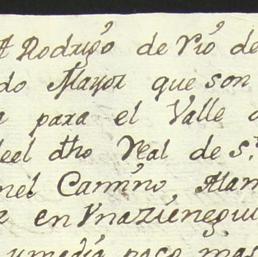 A Rodrigo de rio de
do Mayor que son
a para el Valle
del dho Real de s.
nel Camino Alam
en Vnazieneguu
y media poco mas